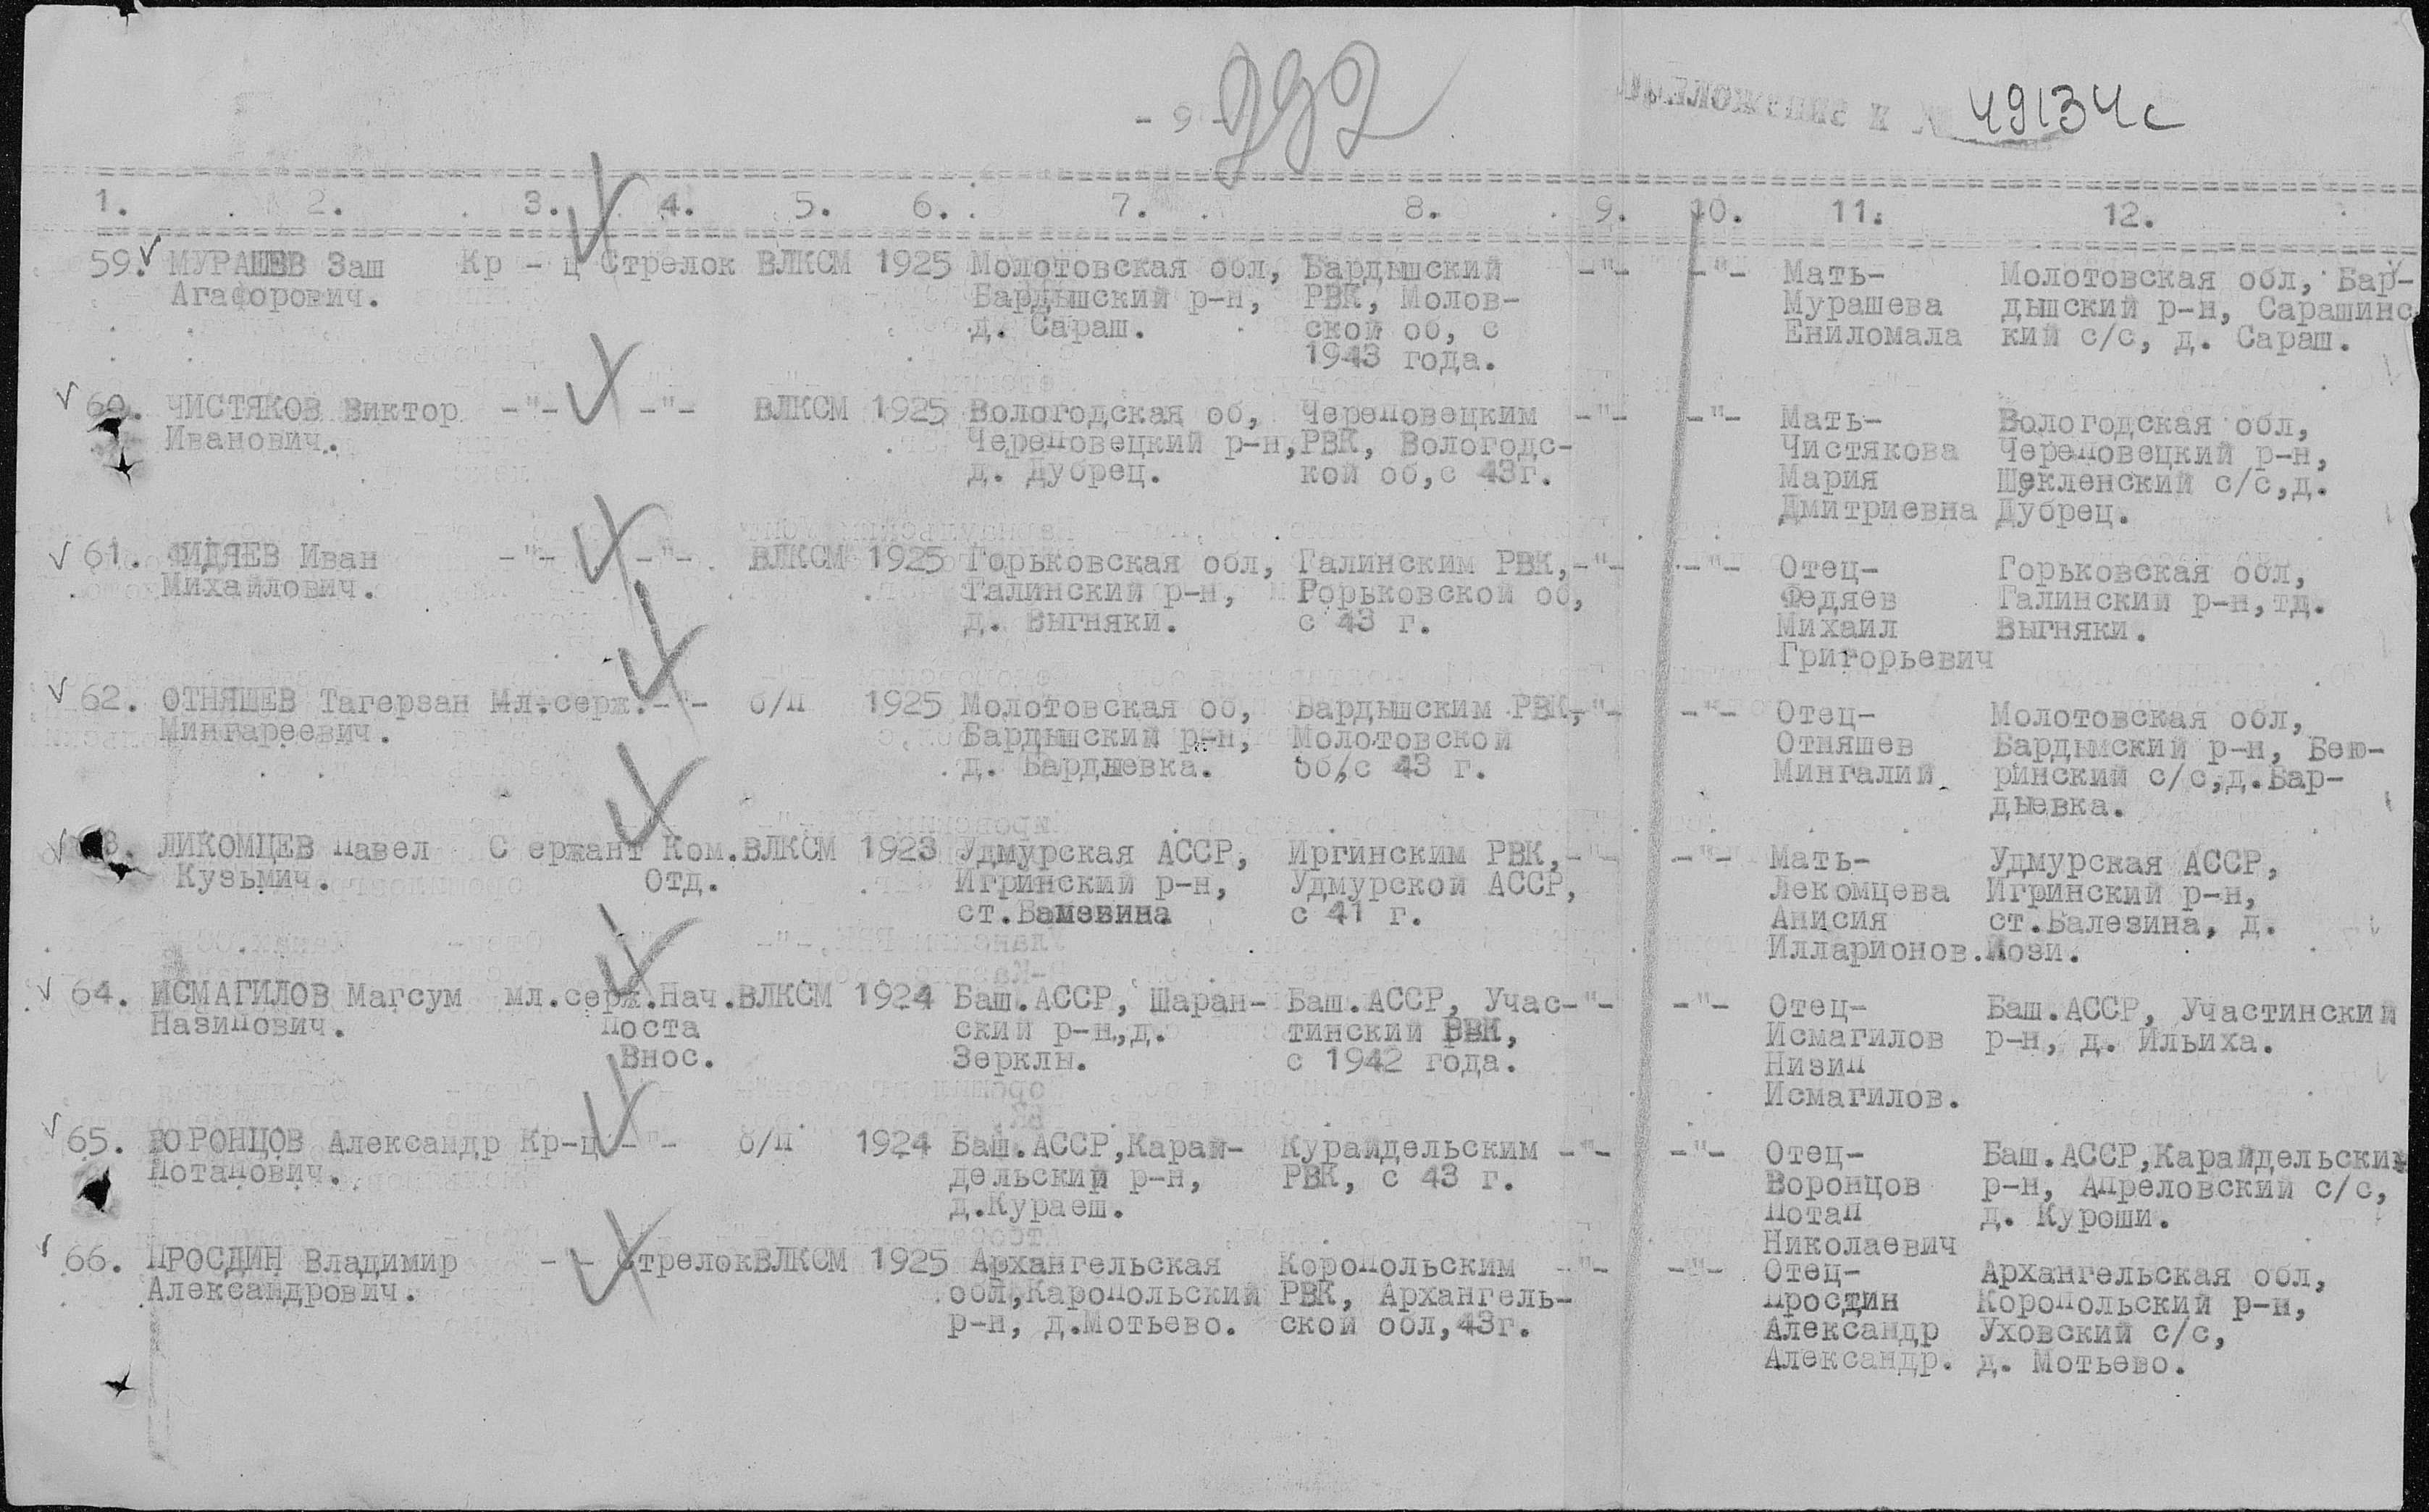 - 9 -
292
49134с
1. 2. 3. 4. 5. 6. 7. 8. 9. 10. 11. 12.
59. МУРАШЕВ Заш Кр - ц Стрелок ВЛКСМ 1925 Молотовская обл, Бардышский -"- -"- Мать- Молотовская обл, Бар-
Агафорович. Бардышский р-н, РВК, Молов- Мурашева дышский р-н, Сарашинс
д. Сараш. ской об, с Ениломала кий с/с, д. Сараш.
1943 года.
60. ЧИСТЯКОВ Виктор -"- -"- ВЛКСМ 1925 Вологодская об, Череповецким -"- -"- Мать- Вологодская обл,
Иванович. Череповецкий р-н, РВК, Вологодс- Чистякова Череповецкий р-н,
д. Дубрец. кой об,с 43г. Мария Шекленский с/с,д.
Дмитриевна Дубрец.
61. ФИДЯЕВ Иван -"- -"- ВЛКСМ 1925 Горьковская обл, Галинским РВК, -"- -"- Отец- Горьковская обл,
Михайлович. Талинский р-н, Рорьковской об, Федяев Галинский р-н,тд.
д. Выгняки. с 43 г. Михаил Выгняки.
Григорьевич
62. ОТНЯШЕВ Тагерзан Мл.серж. -"- б/п 1925 Молотовская об, Бардышским РВК, -"- -"- Отец- Молотовская обл,
Мингареевич. Бардышский р-н, Молотовской Отняшев Бардымский р-н, Бею-
д. Бардыевка. об,с 43 г. Мингалий ринский с/с,д.Бар-
дыевка.
3. ЛИКОМЦЕВ Павел С ержант Ком. ВЛКСМ 1923 Удмурская АССР, Иргинским РВК, -"- -"- Мать- Удмурская АССР,
Кузьмич. Отд. Игринский р-н, Удмурской АССР, Лекомцева Игринский р-н,
ст. с 41 г. Анисия ст.Балезина, д.
Илларионов. Лози.
64. ИСМАГИЛОВ Магсум мл.серж. Нач. ВЛКСМ 1924 Баш.АССР, Шаран- Баш.АССР, Учас- -"- -"- Отец- Баш.АССР, Участинский
Назипович. Поста ский р-н,д. тинский РВК, Исмагилов р-н, д. Ильиха.
Внос. Зерклы. с 1942 года. Низип
Исмагилов.
65. ВОРОНЦОВ Александр Кр-ц -"- б/п 1924 Баш.АССР,Карай- Курайдельским -"- -"- Отец- Баш.АССР,Карайдельский
Потапович. дельский р-н, РВК, с 43 г. Воронцов р-н, Апреловский с/с,
д.Кураеш. Потап д. Куроши.
Николаевич
66. ПРОСДИН Владимир - - Стрелок ВЛКСМ 1925 Архангельская Коропольским -"- -"- Отец- Архангельская обл,
Александрович. обл,Каропольский РВК, Архангель- Простин Коропольский р-н,
р-н, д.Мотьево. ской обл,43г. Александр Уховский с/с,
Александр. д. Мотьево.